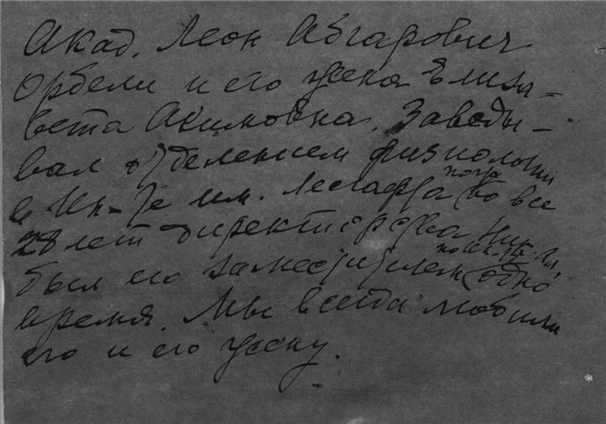 Акад. Леон Абгарович
Орбели и его жена Елиза-
вета Акимовна. Заведы-
вал отделением физиологии
в Ин-те им. Лесгафта во все
28 лет директорства Ник. Ал.
был его заместителем одно
время. Мы всегда любили
его и его жену.